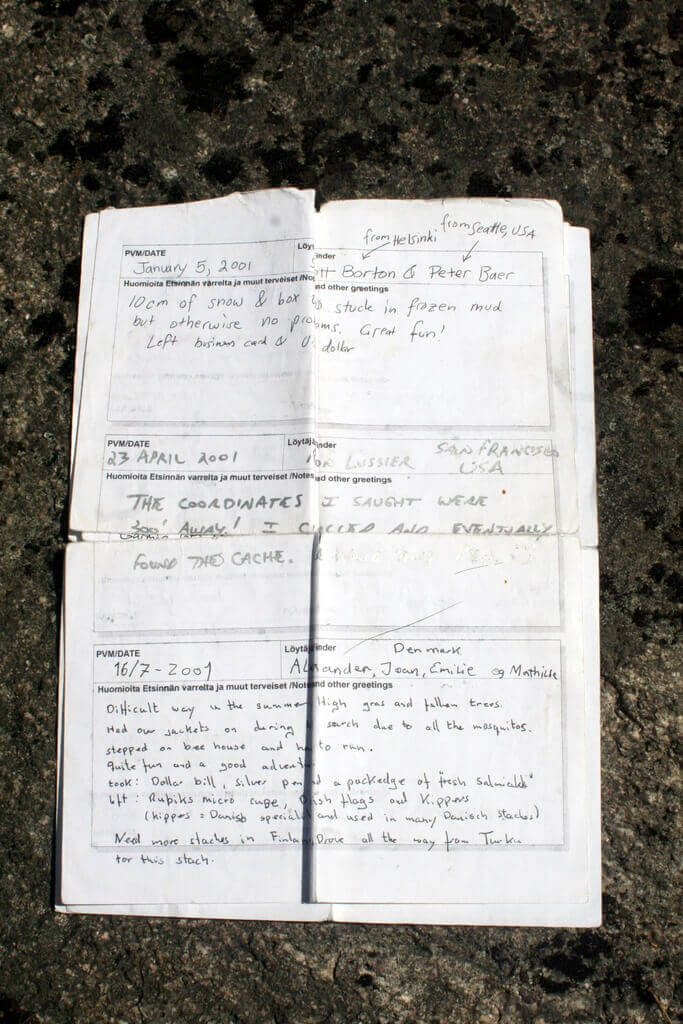 from Helsinki from Seattle, USA
PVM/DATE Löytäjä/Finder
January 5, 2001 Borton & Peter Baer
Huomioita Etsinnän varrelta ja muut terveiset /Notes and other greetings
10cm of snow & box stuck in frozen mud
but otherwise no probms. Great fun!
Left business card & dollar
PVM/DATE Löytäjä/Finder SAN FRANCISCO
23 APRIL 2001 LUSSIER USA
Huomioita Etsinnän varrelta ja muut terveiset /Notes and other greetings
THE COORDINATES I SAUGHT WERE
300' AWAY! I CIRCLED AND EVENTUALLY
FOUND THE CACHE.
PVM/DATE Löytäjä/Finder Denmark
16/7-2001 Joan, Emilie og Mathilde
Huomioita Etsinnän varrelta ja muut terveiset /Notes and other greetings
Difficult way in the summer High gras and fallen trees.
Had our jackets on during search due to all the mosquitos.
stepped on bee house and to run.
quite fun and a good
took: Dollar bill, silver pen a packedge of "fresh salmialds"
left: Rubiks micro cube, flags and Kippers
(kippers = Danish and used in many Danisch staches)
Need more staches in Drove all the way from Turku
for this stach.